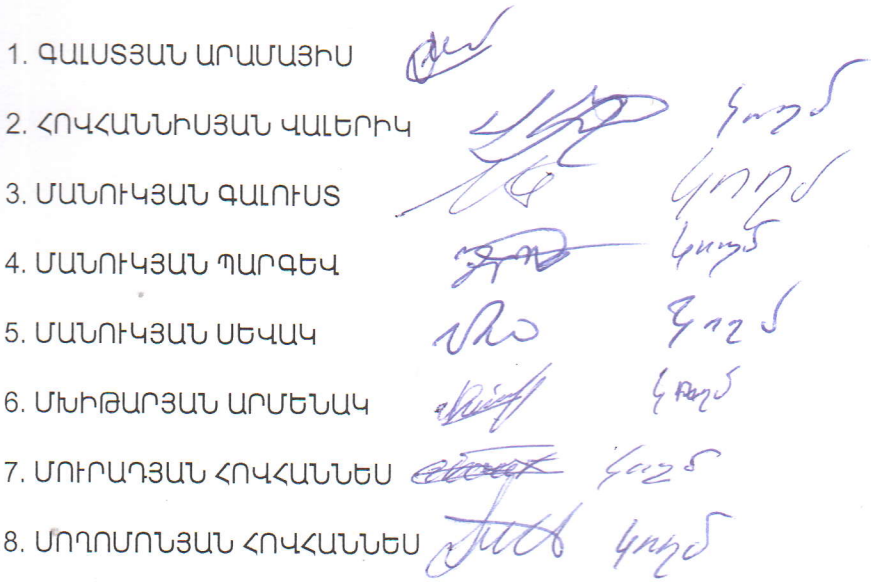 1. ԳԱԼՍՏՅԱՆ ԱՐԱՄԱՅԻՍ
2. ՀՈՎՀԱՆՆԻՍՅԱՆ ՎԱԼԵՐԻԿ կողմ
3. ՄԱՆՈՒԿՅԱՆ ԳԱԼՈՒՍՏ կողմ
4. ՄԱՆՈՒԿՅԱՆ ՊԱՐԳԵՎ կողմ
5. ՄԱՆՈՒԿՅԱՆ ՍԵՎԱԿ կողմ
6. ՄԽԻԹԱՐՅԱՆ ԱՐՄԵՆԱԿ կողմ
7. ՄՈՒՐԱԴՅԱՆ ՀՈՎՀԱՆՆԵՍ կողմ
8. ՍՈՂՈՄՈՆՅԱՆ ՀՈՎՀԱՆՆԵՍ կողմ